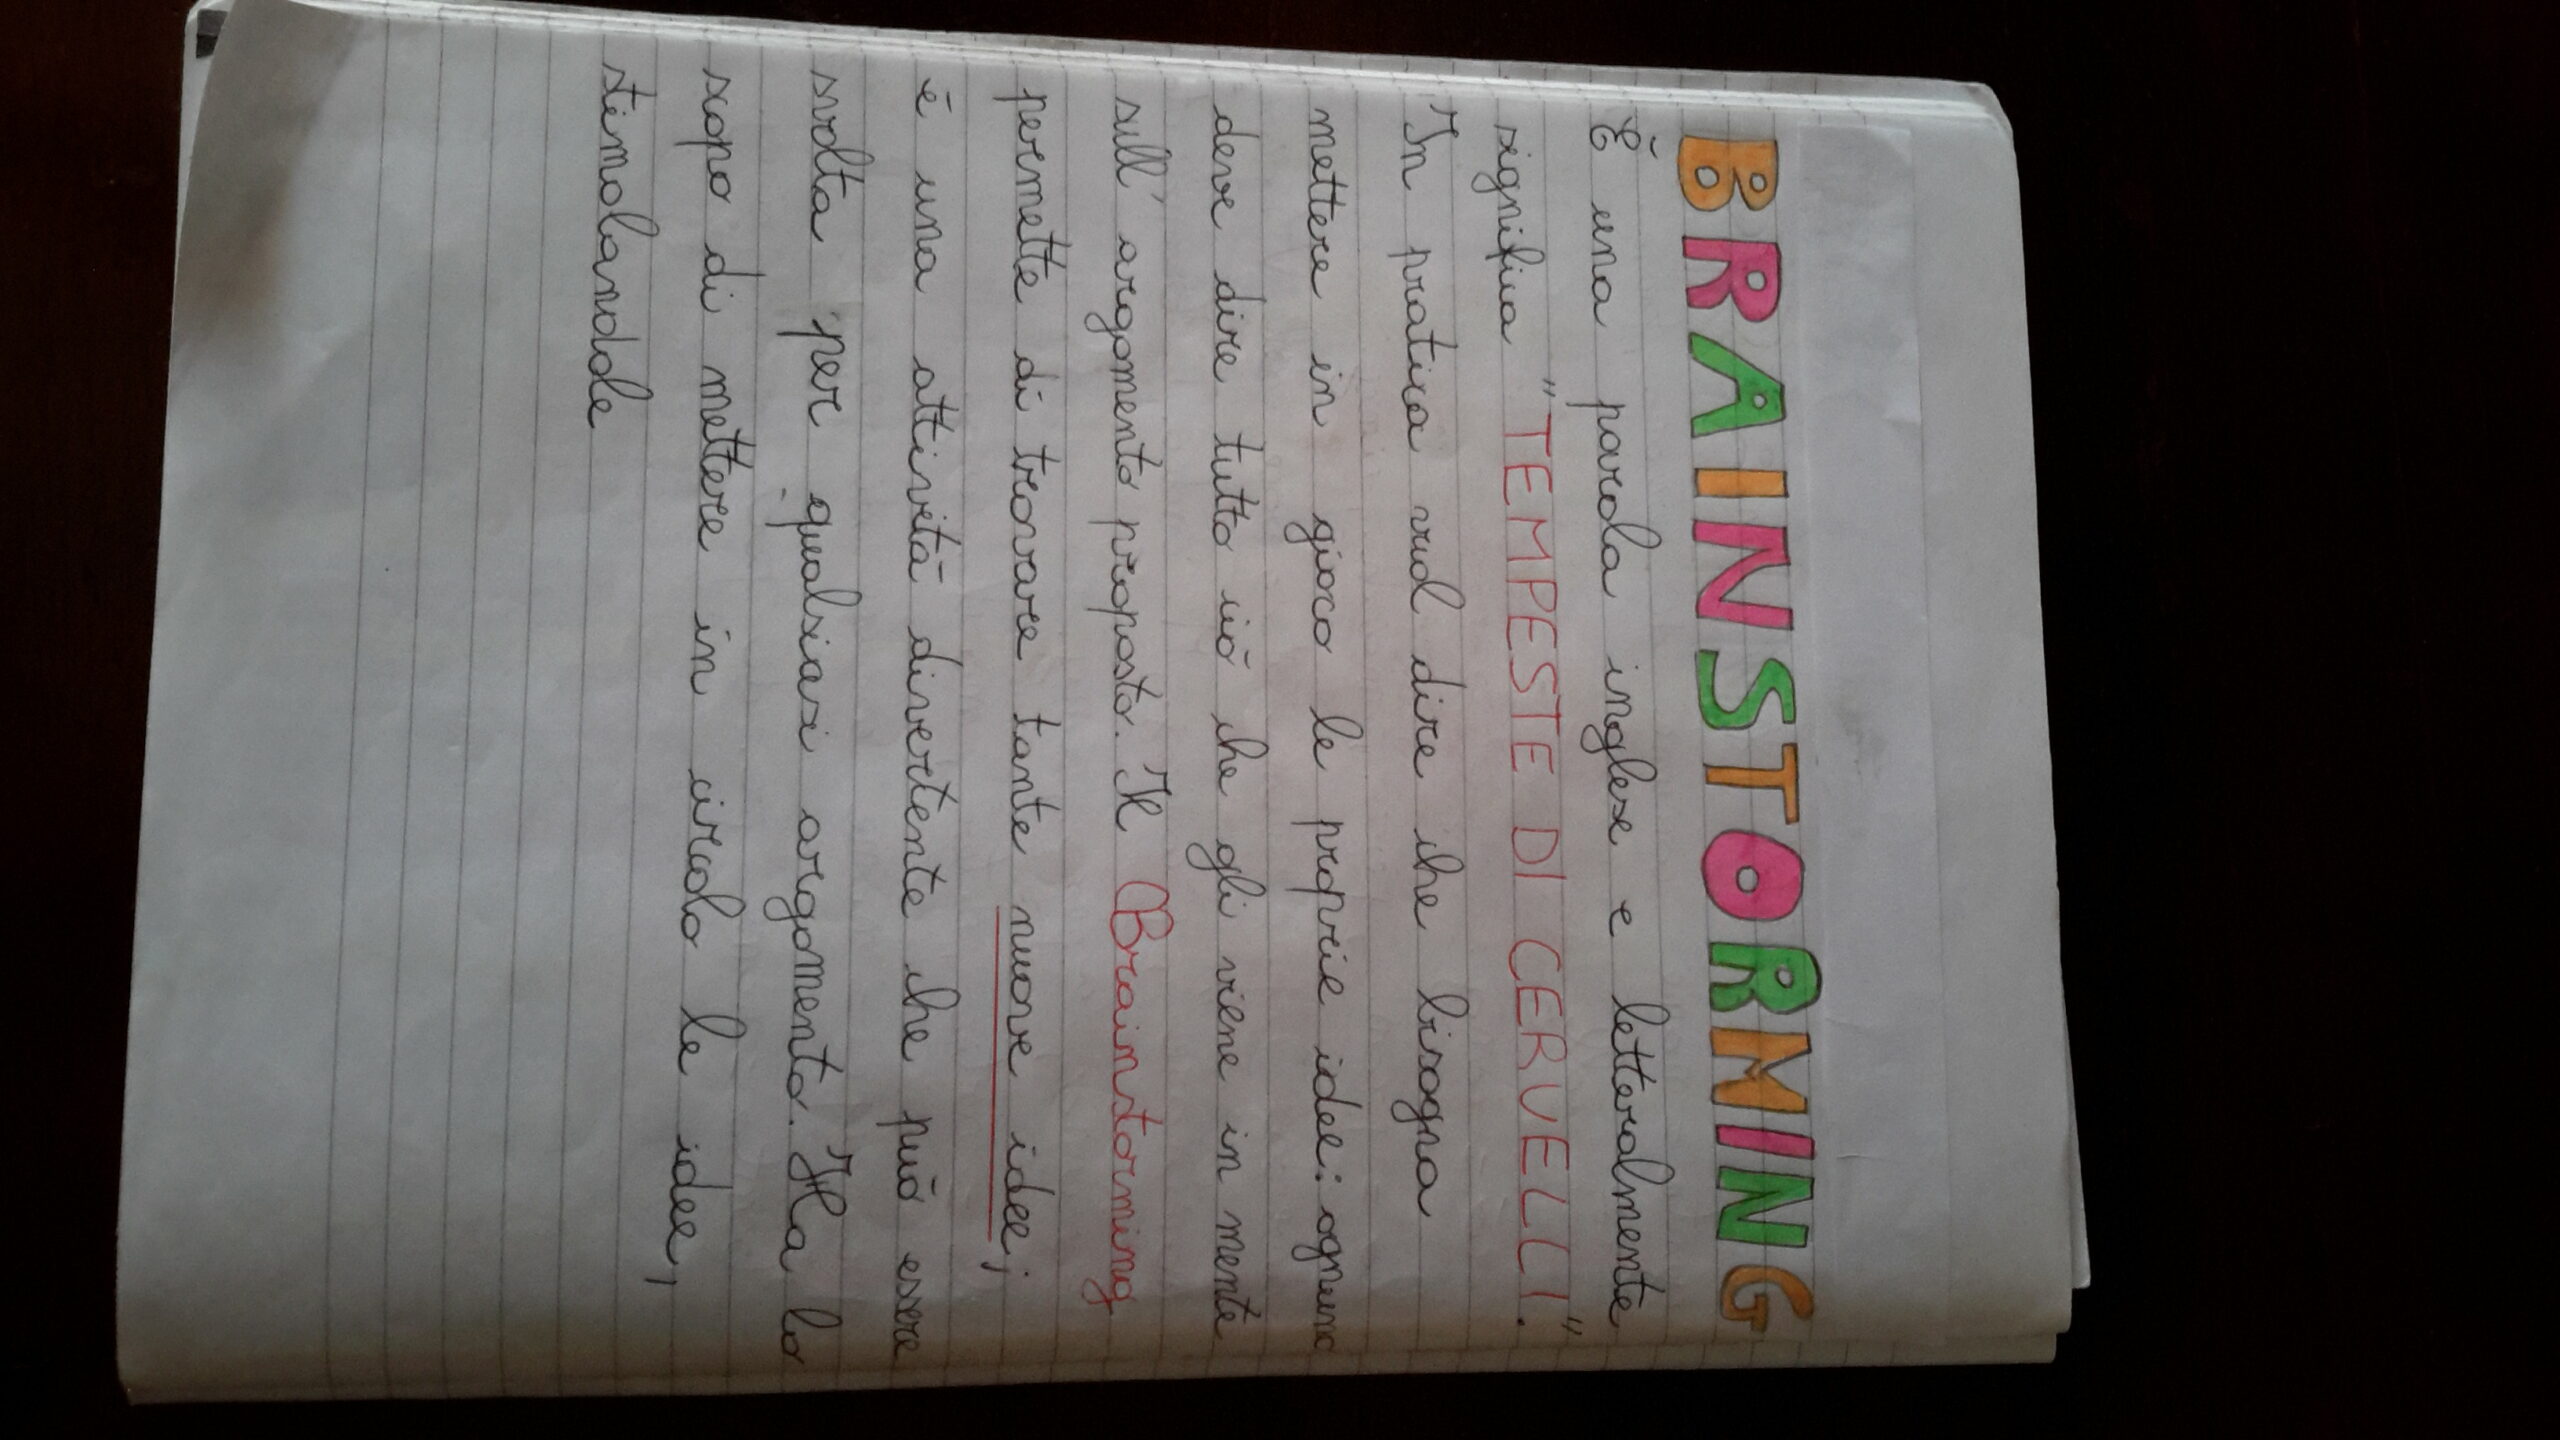 BRAINSTORMING
È una parola inglese e letteralmente
significa "TEMPESTE DI CERVELLI".
In pratica vuol dire che bisogna
mettere in gioco le proprie idee: ognuno
deve dire tutto ciò che gli viene in mente
sull'argomento proposto. Il Brainstorming
permette di trovare tante nuove idee;
è una attività divertente che può essere
svolta per qualsiasi argomento. Ha lo
scopo di mettere in circolo le idee,
stimolandole